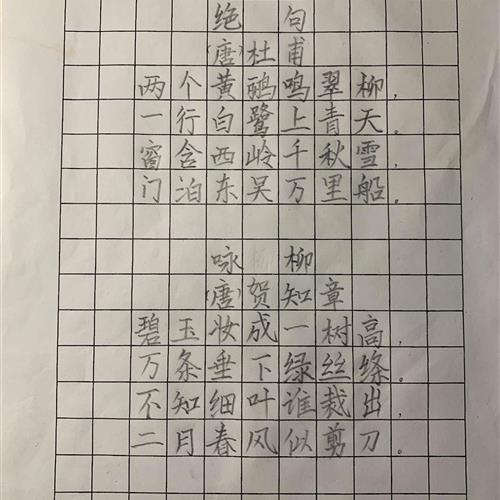 绝句
(唐)杜甫
两个黄鹂鸣翠柳，
一行白鹭上青天。
窗含西岭千秋雪，
门泊东吴万里船。
咏柳
(唐)贺知章
碧玉妆成一树高，
万条垂下绿丝绦。
不知细叶谁裁出，
二月春风似剪刀。